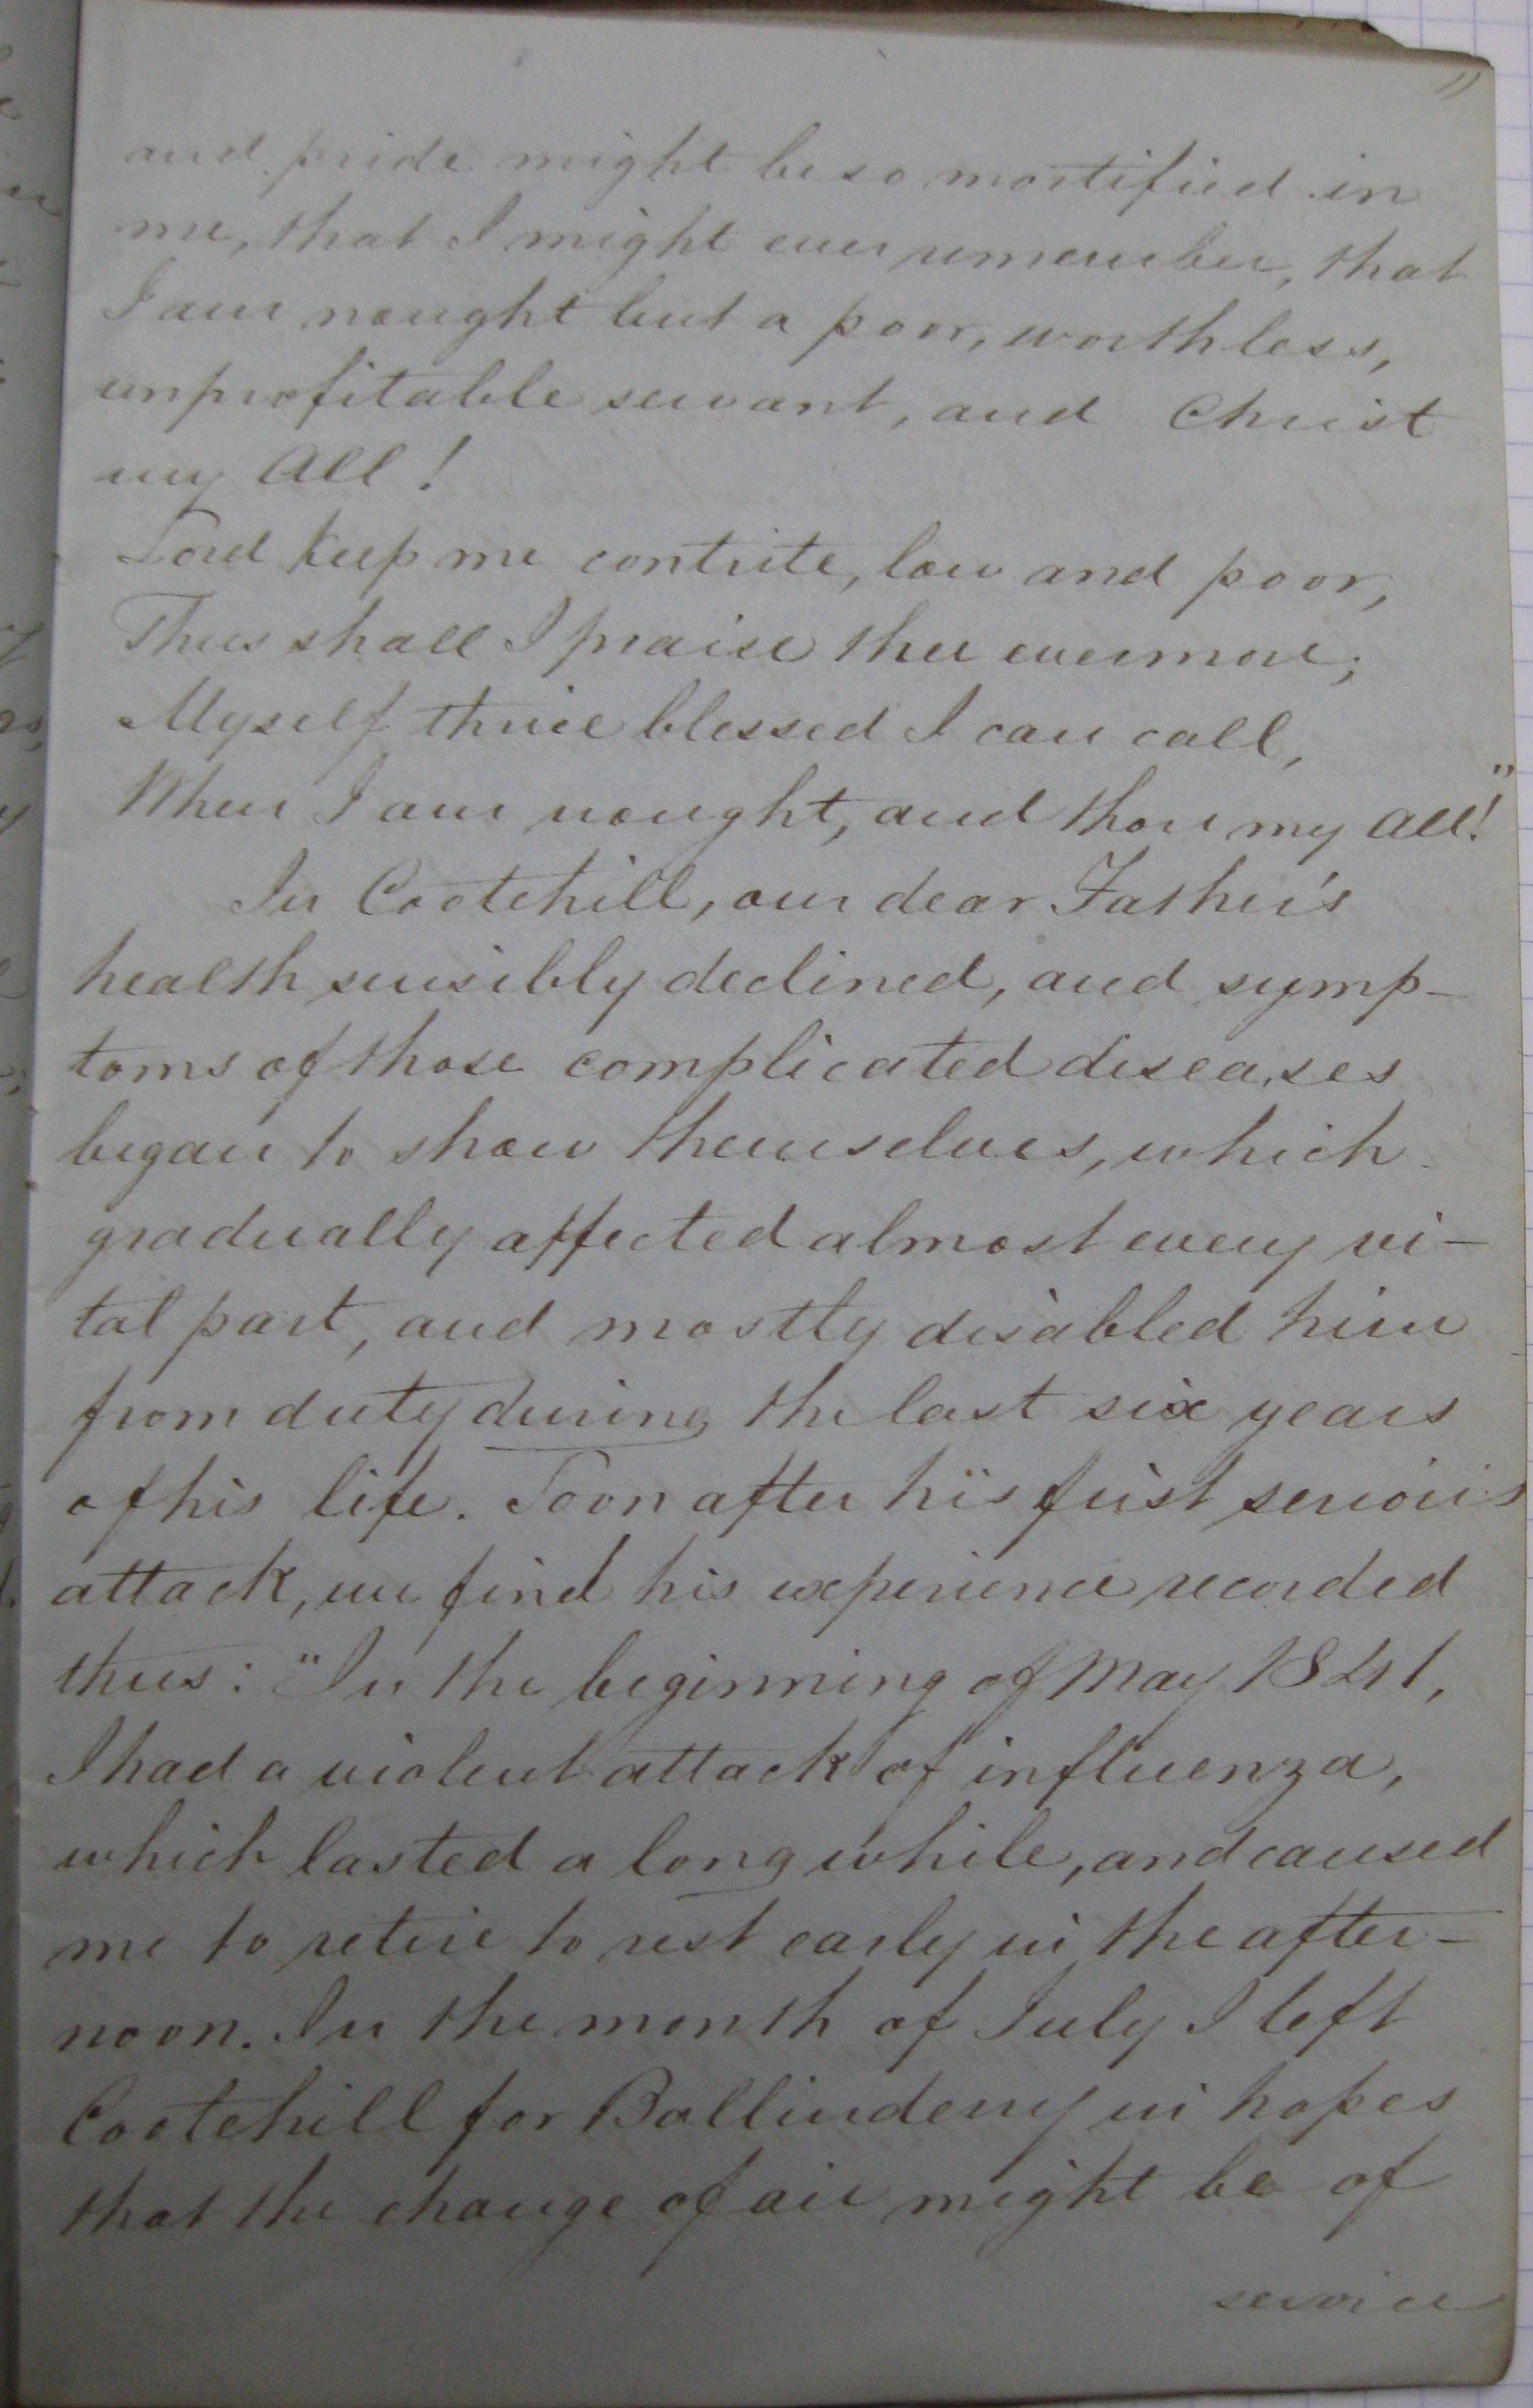 11
and pride might be so mortified in
me, that I might ever remember, that
I am nought but a poor, worthless,
unprofitable servant, and Christ
my All!
Lord keep me contrite, low and poor,
Thus shall I praise thee evermore;
Myself thrice blessed I can call,
When I am nought, and thou my All!"
In Cootehill, our dear Father's
health sensibly declined, and symp-
toms of those complicated diseases
began to show themselves, which
gradually affected almost every vi-
tal part, and mostly disabled him
from duty during the last six years
of his life. Soon after his first serious
attack, we find his experience recorded
thus: "In the beginning of May 1841,
I had a violent attack of influenza,
which lasted a long while, and caused
me to retire to rest early in the after-
noon. In the month of July I left
Cootehill for Ballinderry in hopes
that the change of air might be of
service